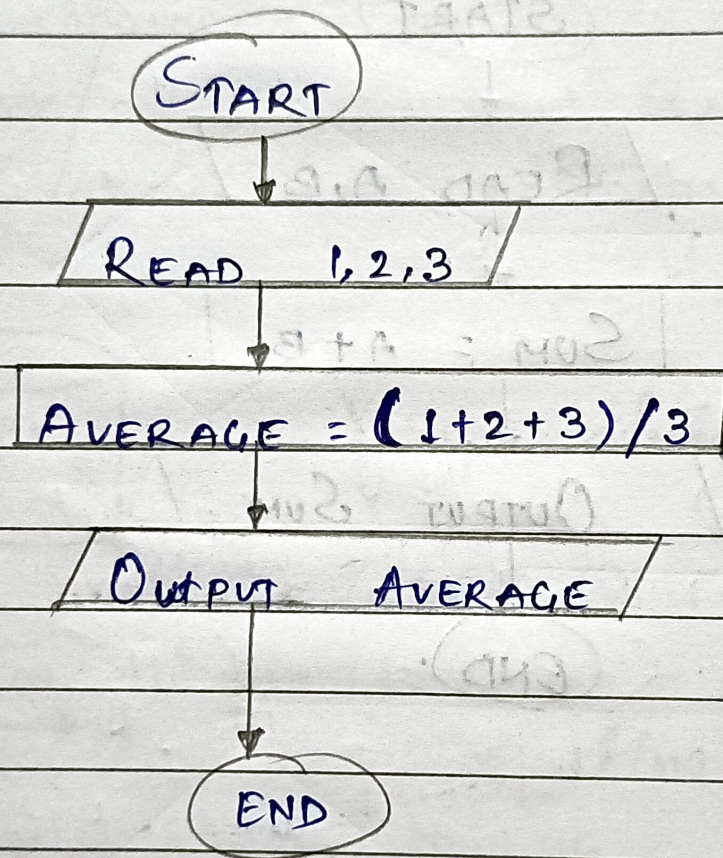 START
READ 1, 2, 3
AVERAGE = (1+2+3)/3
OUTPUT AVERAGE
END